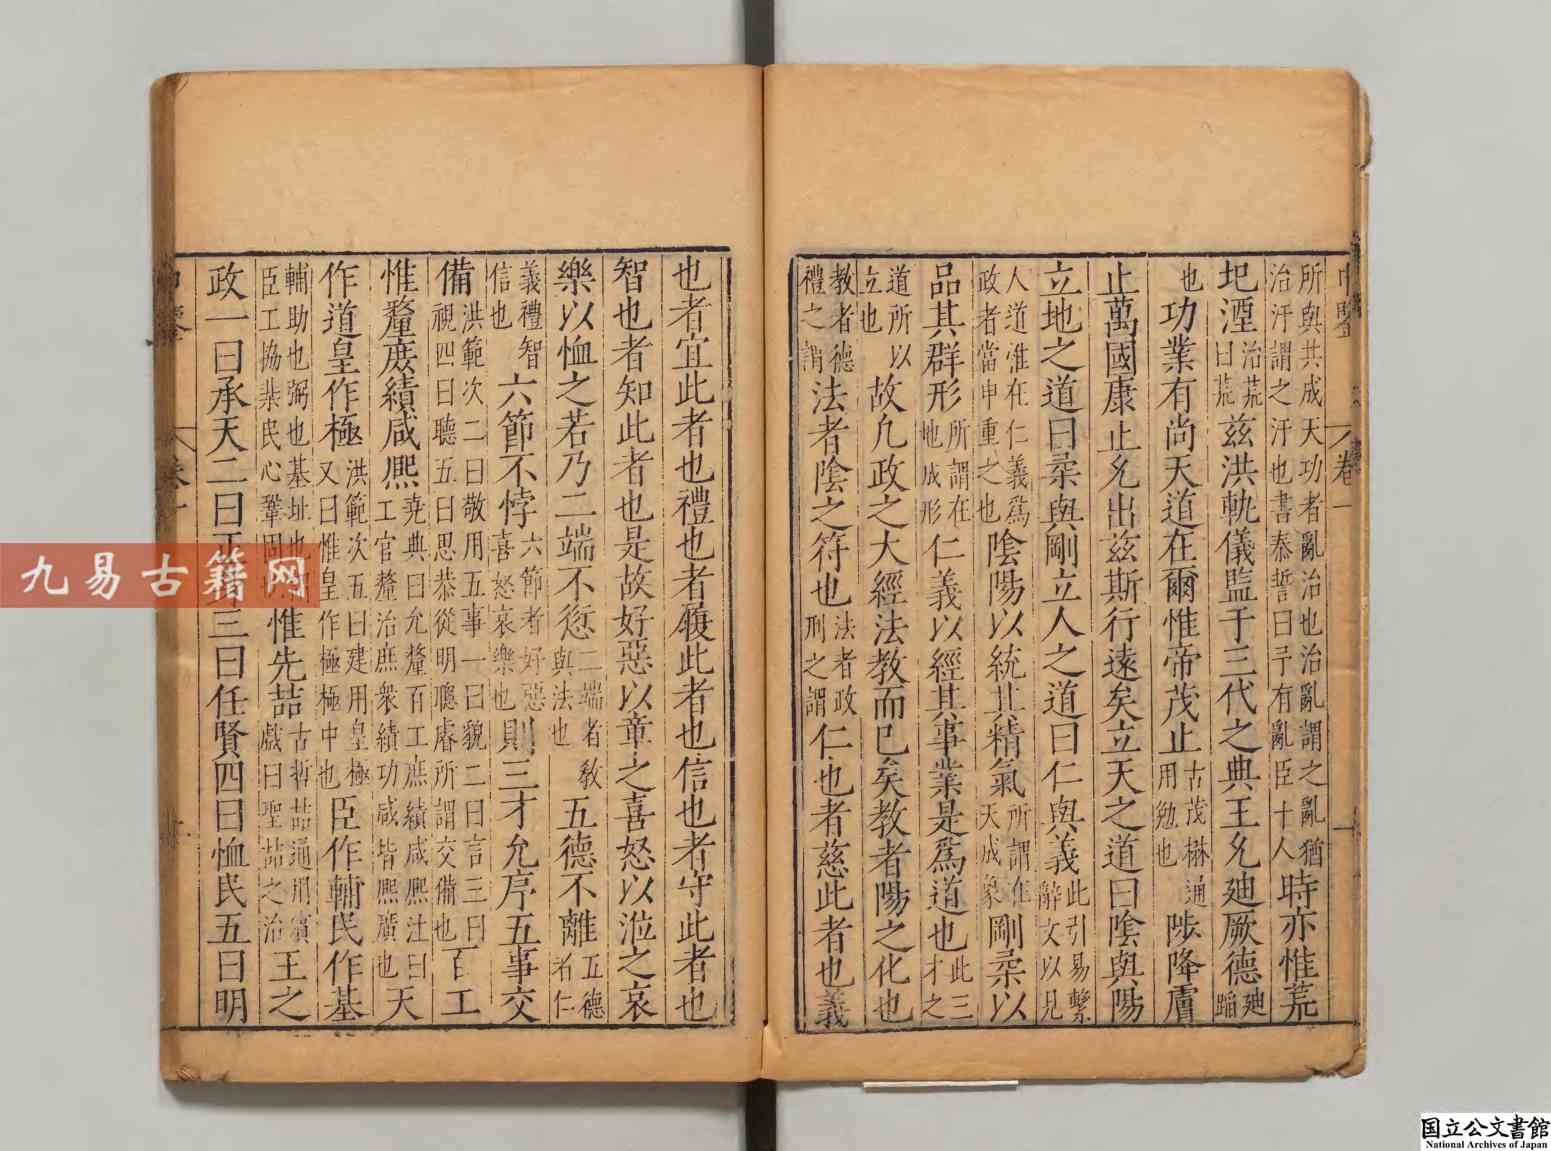 申鑒 卷一
所與共成天功者亂治也治亂謂之亂猶
治汙謂之汙也書泰誓曰予有亂臣十人
時亦惟荒
圮湮
治荒
曰荒
茲洪軌儀監于三代之典王允迪厥德
迪
蹈
也
功業有尚天道在爾惟帝茂止
古茂楙通
用勉也
陟降膚
止萬國康止允出茲斯行遠矣立天之道曰陰與陽
立地之道曰柔與剛立人之道曰仁與義
此引易繫
辭文以見
人道惟在仁義為
政者當申重之也
陰陽以統其精氣
所謂在
天成象
剛柔以
品其群形
所謂在
地成形
仁義以經其事業是為道也
此三
才之
道所以
立也
故凡政之大經法教而已矣教者陽之化也
教者德
禮之謂
法者陰之符也
法者政
刑之謂
仁也者慈此者也義
也者宜此者也禮也者履此者也信也者守此者也
智也者知此者也是故好惡以章之喜怒以涖之哀
樂以恤之若乃二端不愆
二端者教
與法也
五德不離
五德
者仁
義禮智
信也
六節不悖
六節者好惡
喜怒哀樂也
則三才允序五事交
備
洪範次二曰敬用五事一曰貌二曰言三曰
視四曰聽五曰思恭從明聰睿所謂交備也
百工
惟釐庶績咸熙
堯典曰允釐百工庶績咸熙注曰
工官釐治庶衆績功咸皆熙廣也
天
作道皇作極
洪範次五曰建用皇極
又曰惟皇作極極中也
臣作輔民作基
輔助也弼也基址也
臣工協棐民心鞏固
惟先喆
古哲喆通用賓
戲曰聖喆之治
王之
政一曰承天二曰正身三曰任賢四曰恤民五曰明
九易古籍网
国立公文書館
National Archives of Japan